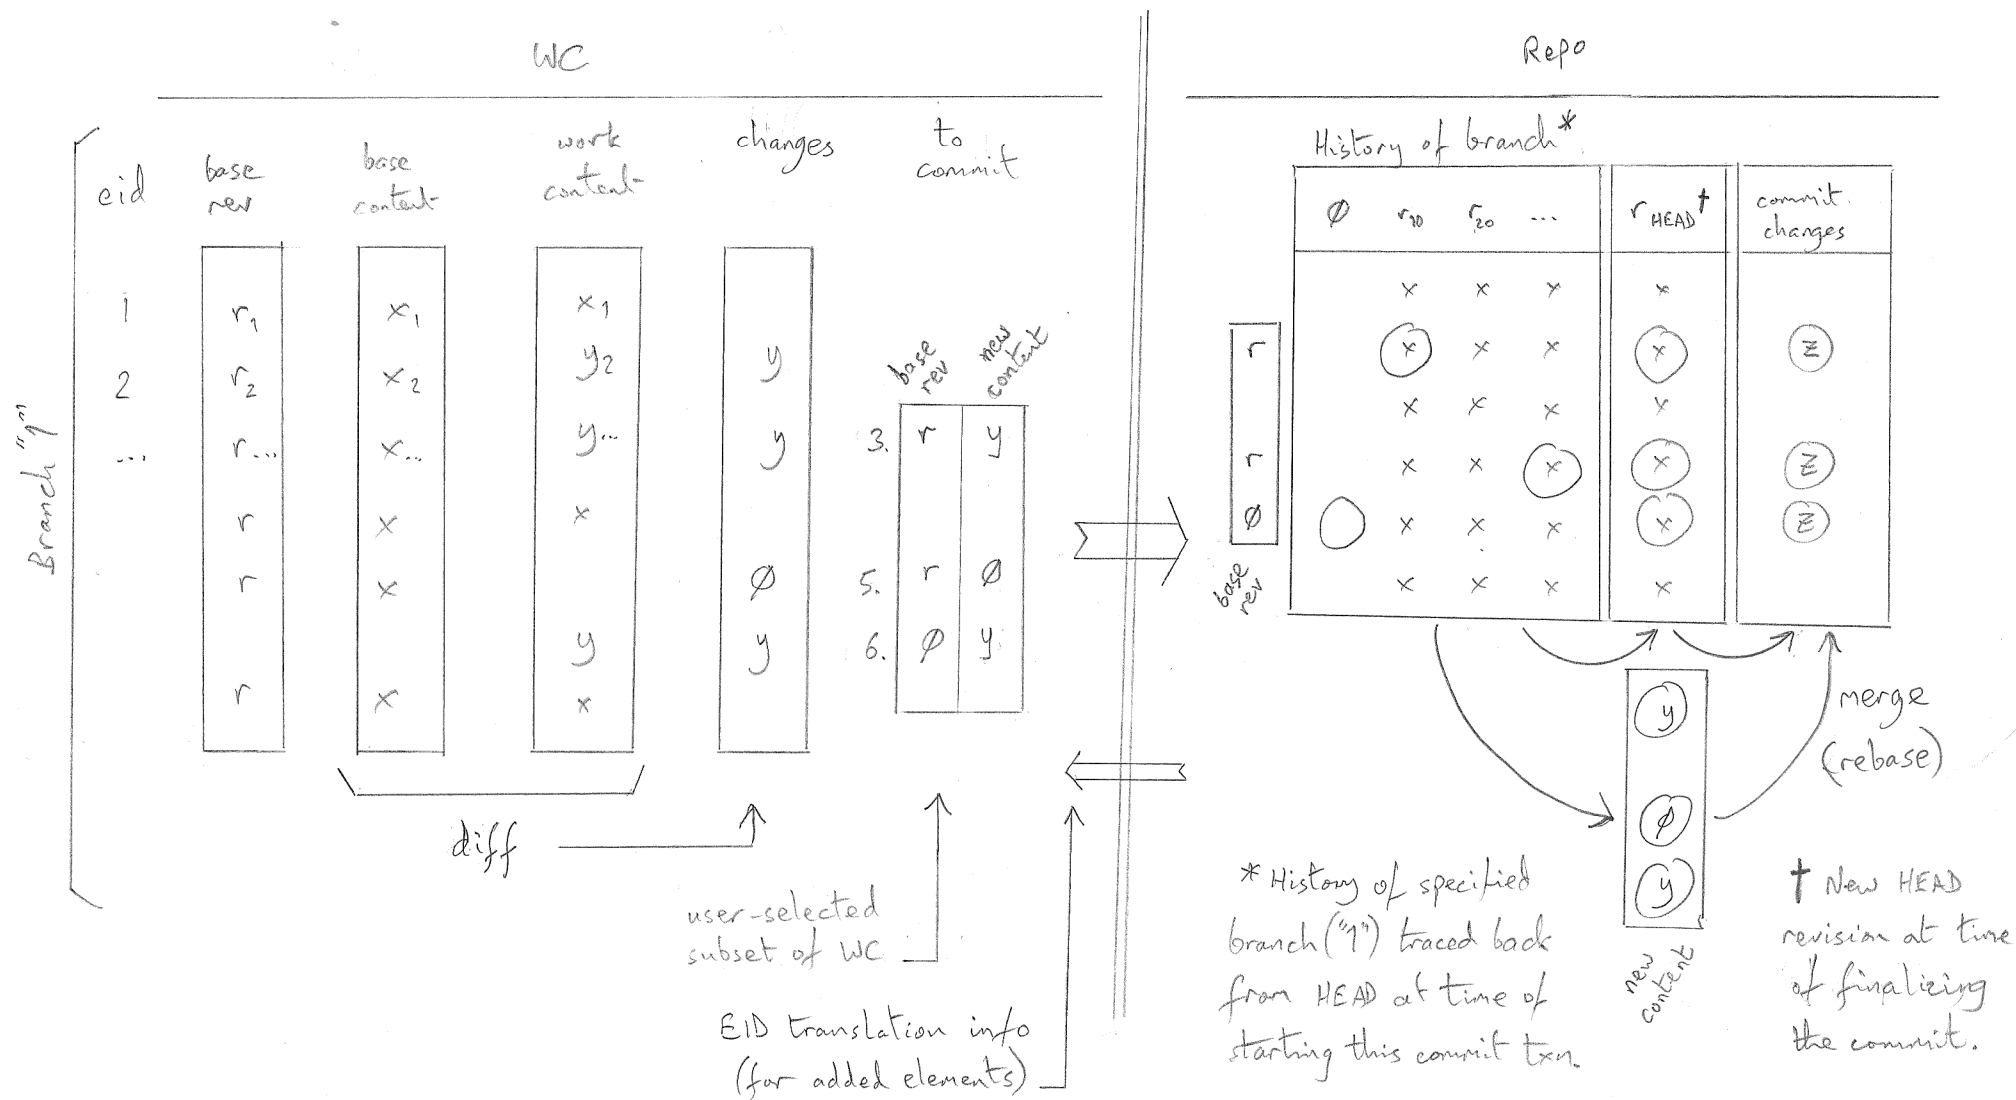 WC
Repo
eid
base
rev
base
content
work
content
changes
to
commit
Branch "1"
1
r1
x1
x1
2
r2
x2
y2
y
...
r...
x...
y...
y
r
x
x
r
x
ø
y
y
r
x
x
base
rev
new
content
3. r y
5. r ø
6. ø y
diff
user-selected
subset of WC
EID translation info
(for added elements)
History of branch*
ø r10 r20 ... rHEAD† commit
changes
x x x x
r x x x x z
x x x x
r x x x x z
ø x x x x z
x x x x
base
rev
y
ø
y
new
content
merge
(rebase)
* History of specified
branch ("1") traced back
from HEAD at time of
starting this commit txn.
† New HEAD
revision at time
of finalizing
the commit.